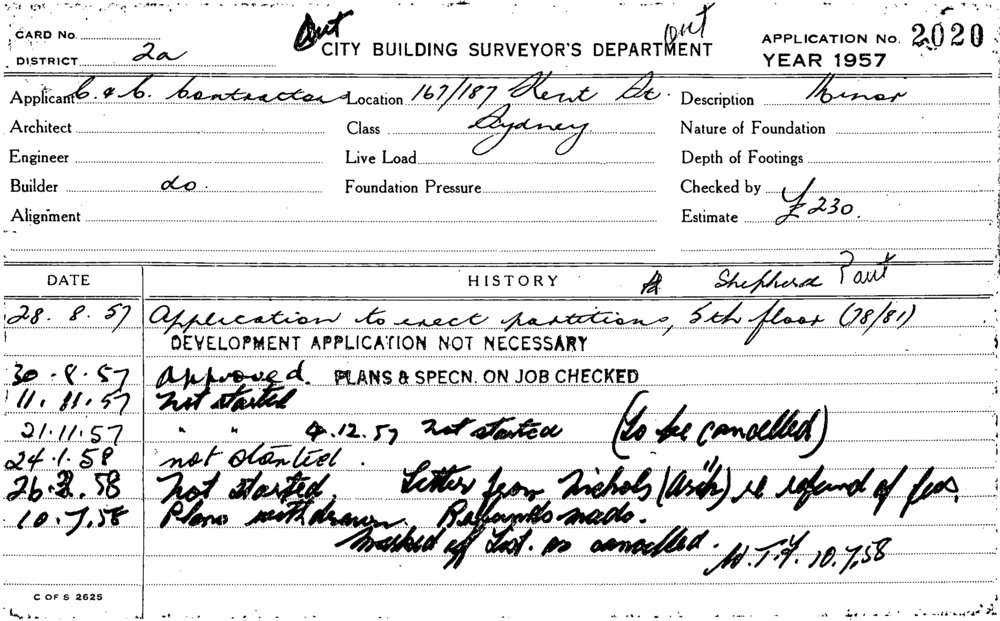 Out out
CARD No. CITY BUILDING SURVEYOR'S DEPARTMENT APPLICATION No. 2020
DISTRICT 2a YEAR 1957
Applicant C. & C. Contractors Location 167/187 Kent St. Description Minor
Architect Class Sydney Nature of Foundation
Engineer Live Load Depth of Footings
Builder do. Foundation Pressure Checked by
Alignment Estimate £230.
DATE HISTORY Shepherd
28.8.57 Application to erect partitions, 5th floor (78/81)
DEVELOPMENT APPLICATION NOT NECESSARY
30.8.57 Approved. PLANS & SPECN. ON JOB CHECKED
11.11.57 Not started
21.11.57 " " 4.12.57 Not started (To be cancelled)
24.1.58 not started.
26.2.58 Not started. Letter from Nichols (Arch) re refund of fees.
10.7.58 Plans withdrawn. Refunds made.
Marked off List. as cancelled. 10.7.58
C OF S 2625